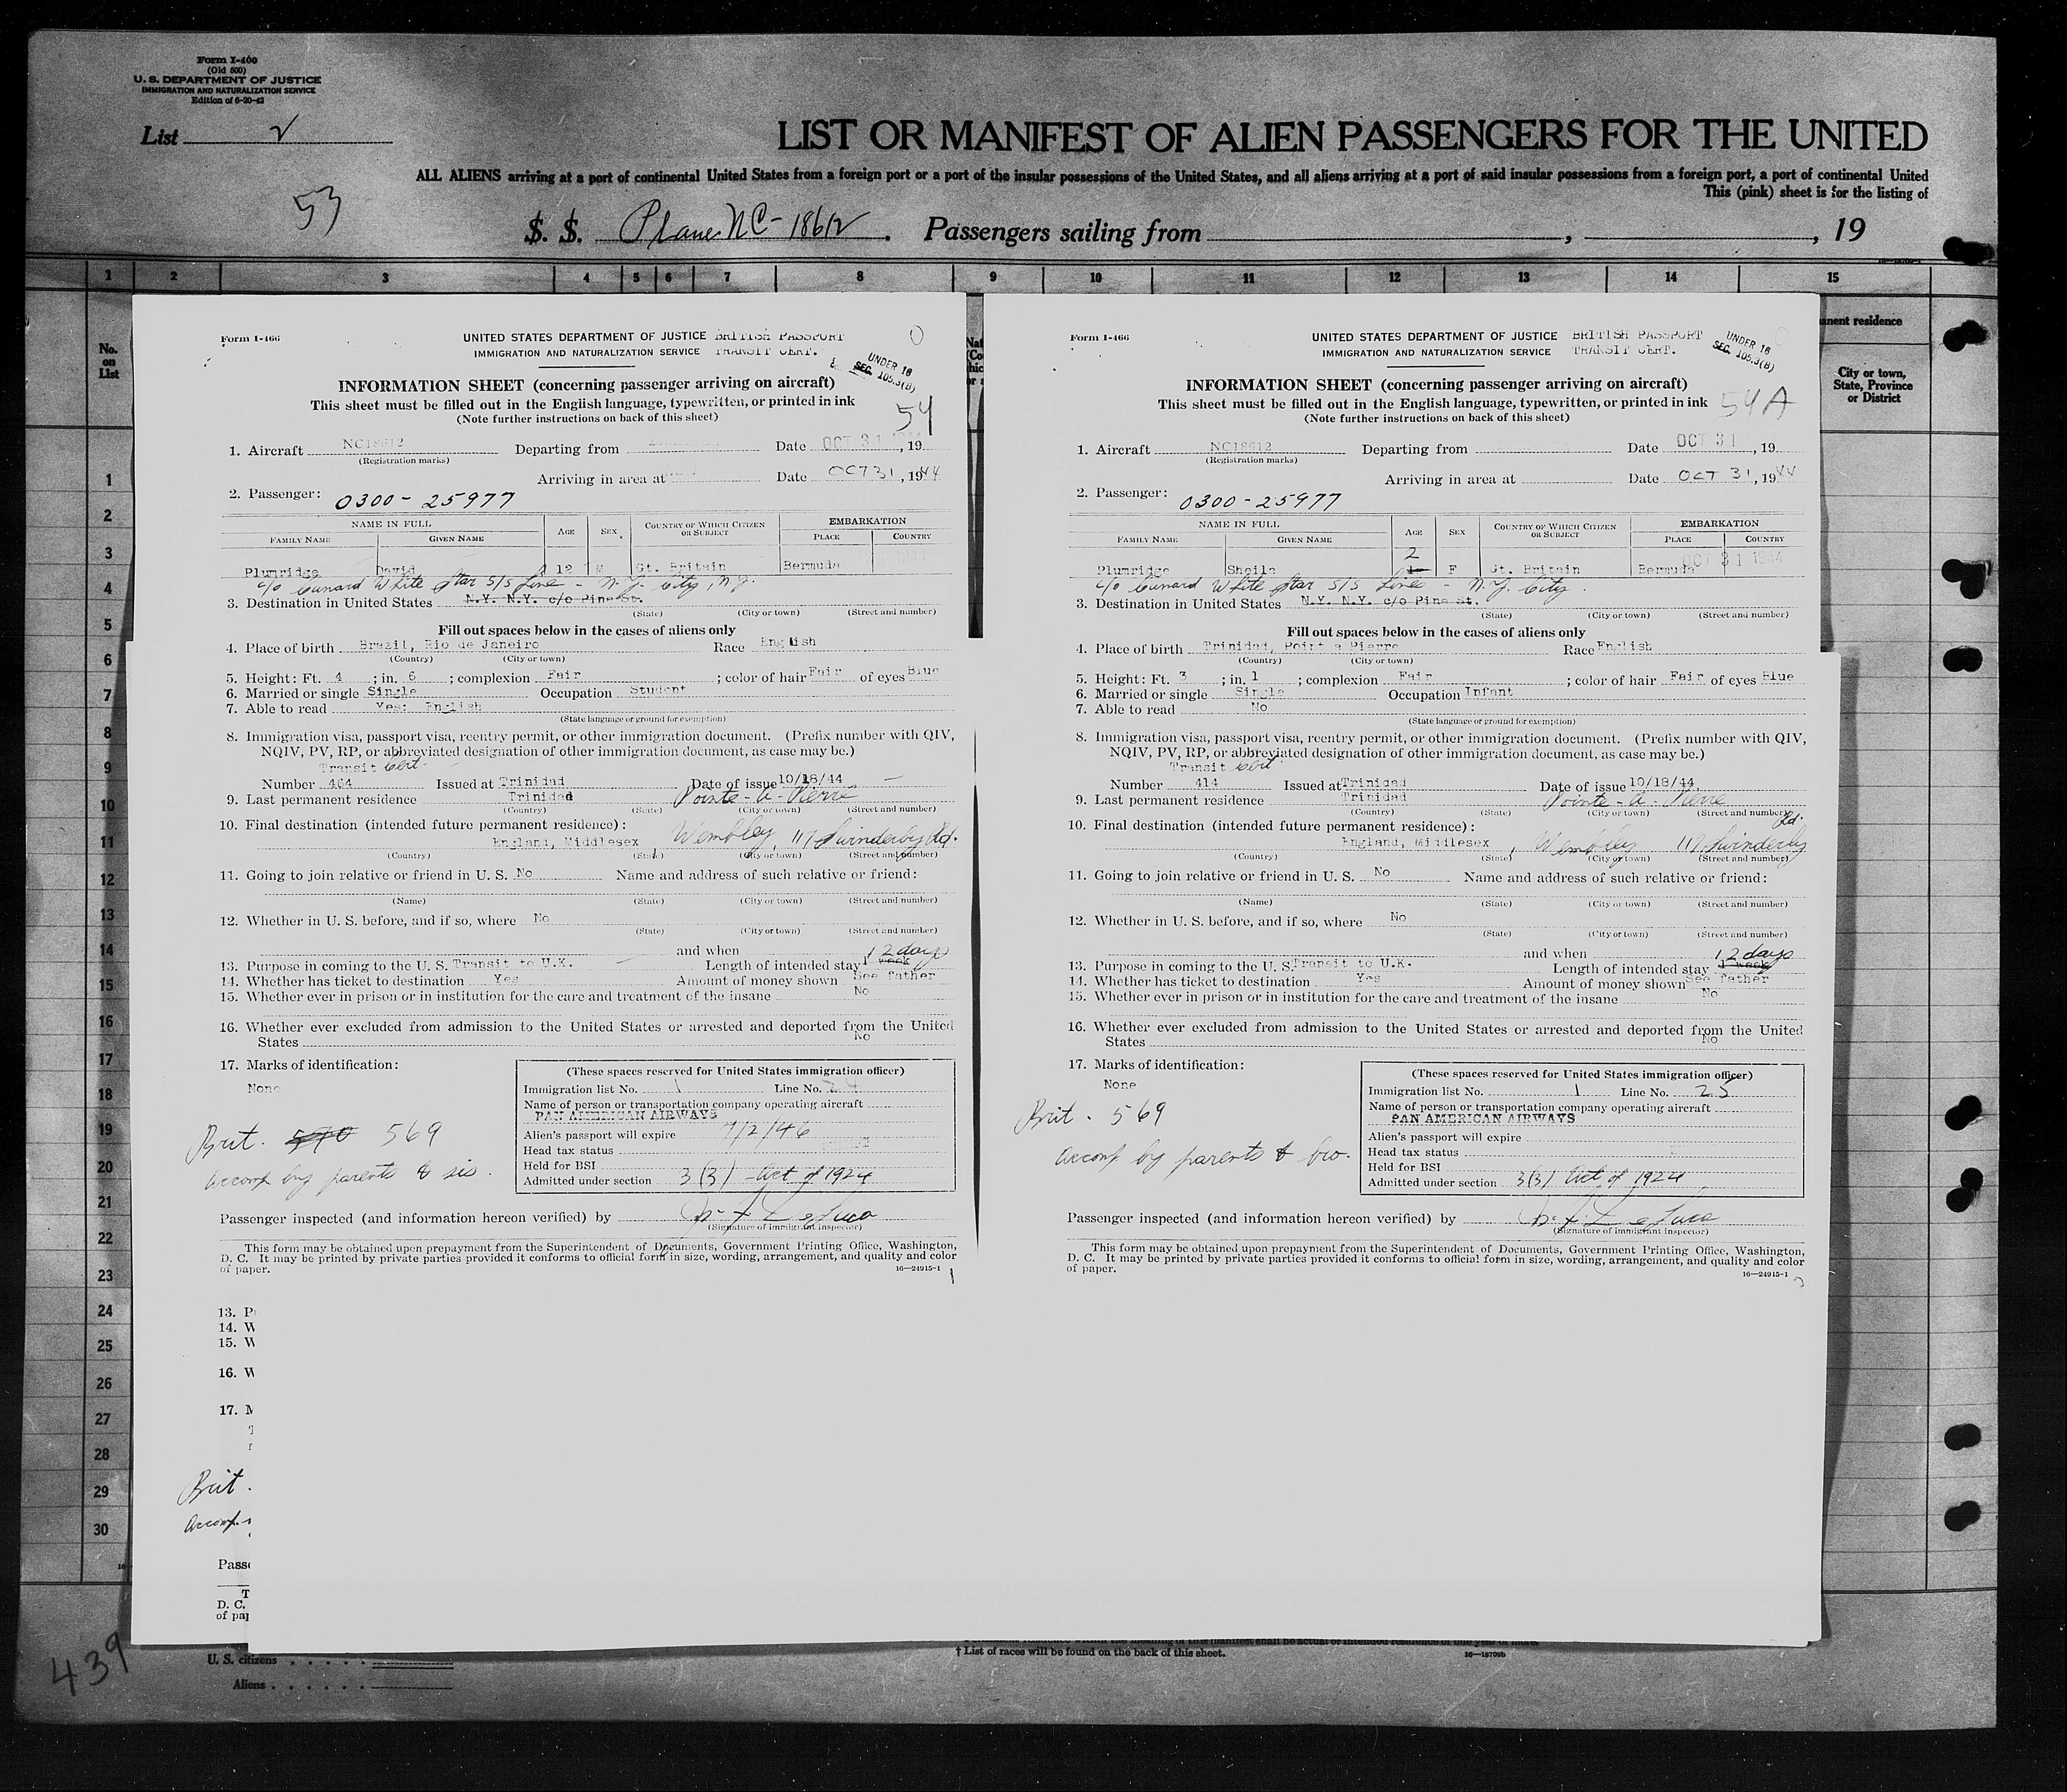 Form I-400
(Old 500)
U. S. DEPARTMENT OF JUSTICE
IMMIGRATION AND NATURALIZATION SERVICE
Edition of 6-20-43
List 2
53
LIST OR MANIFEST OF ALIEN PASSENGERS FOR THE UNITED
ALL ALIENS arriving at a port of continental United States from a foreign port or a port of the insular possessions of the United States, and all aliens arriving at a port of said insular possessions from a foreign port, a port of continental United
This (pink) sheet is for the listing of
S. S. Plane NC-18612. Passengers sailing from , , 19
1 2 3 4 5 6 7 8 9 10 11 12 13 14 15
No. on List
anent residence
City or town, State, Province or District
Form I-466
UNITED STATES DEPARTMENT OF JUSTICE BRITISH PASSPORT
IMMIGRATION AND NATURALIZATION SERVICE TRANSIT CERT.
UNDER 16
SEC. 105.3(B)
INFORMATION SHEET (concerning passenger arriving on aircraft)
This sheet must be filled out in the English language, typewritten, or printed in ink
(Note further instructions on back of this sheet)
54
1. Aircraft NC18612 Departing from Date OCT 31, 19
(Registration marks)
Arriving in area at Date OCT 31, 1944
2. Passenger: 0300-25977
NAME IN FULL AGE SEX COUNTRY OF WHICH CITIZEN OR SUBJECT EMBARKATION
FAMILY NAME GIVEN NAME PLACE COUNTRY
Plumridge David 12 M Gt. Britain Bermuda
c/o Cunard White Star S/S Line - N.Y. City, N.Y.
3. Destination in United States N.Y. N.Y. c/o Pine St.
(State) (City or town) (Street and number)
Fill out spaces below in the cases of aliens only
4. Place of birth Brazil, Rio de Janeiro Race English
(Country) (City or town)
5. Height: Ft. 4 ; in. 6 ; complexion Fair ; color of hair Fair of eyes Blue
6. Married or single Single Occupation Student
7. Able to read Yes: English
(State language or ground for exemption)
8. Immigration visa, passport visa, reentry permit, or other immigration document. (Prefix number with QIV,
NQIV, PV, RP, or abbreviated designation of other immigration document, as case may be.)
Transit Cert.
Number 464 Issued at Trinidad Date of issue 10/18/44
9. Last permanent residence Trinidad Pointe-a-Pierre
(Country) (State) (City or town) (Street and number)
10. Final destination (intended future permanent residence):
England, Middlesex, Wembley, 117 Swinderby Rd.
(Country) (State) (City or town) (Street and number)
11. Going to join relative or friend in U. S. No Name and address of such relative or friend:
(Name) (State) (City or town) (Street and number)
12. Whether in U. S. before, and if so, where No
(State) (City or town) (Street and number)
and when 12 days
13. Purpose in coming to the U. S. Transit to U.K. Length of intended stay 1 week
14. Whether has ticket to destination Yes Amount of money shown See father
15. Whether ever in prison or in institution for the care and treatment of the insane No
16. Whether ever excluded from admission to the United States or arrested and deported from the United
States No
17. Marks of identification:
None
(These spaces reserved for United States immigration officer)
Immigration list No. 1 Line No. 24
Name of person or transportation company operating aircraft
PAN AMERICAN AIRWAYS
Alien's passport will expire 7/2/46
Head tax status
Held for BSI
Admitted under section 3(3) - Act of 1924
Brit. 570 569
accomp by parents & sis.
Passenger inspected (and information hereon verified) by
(Signature of immigrant inspector)
This form may be obtained upon prepayment from the Superintendent of Documents, Government Printing Office, Washington,
D. C. It may be printed by private parties provided it conforms to official form in size, wording, arrangement, and quality and color
of paper.
16—24915-1
Form I-466
UNITED STATES DEPARTMENT OF JUSTICE BRITISH PASSPORT
IMMIGRATION AND NATURALIZATION SERVICE TRANSIT CERT.
UNDER 16
SEC. 105.3(B)
INFORMATION SHEET (concerning passenger arriving on aircraft)
This sheet must be filled out in the English language, typewritten, or printed in ink
(Note further instructions on back of this sheet)
54A
1. Aircraft NC18612 Departing from Date OCT 31, 19
(Registration marks)
Arriving in area at Date OCT 31, 1944
2. Passenger: 0300-25977
NAME IN FULL AGE SEX COUNTRY OF WHICH CITIZEN OR SUBJECT EMBARKATION
FAMILY NAME GIVEN NAME PLACE COUNTRY
2
Plumridge Sheila F Gt. Britain Bermuda OCT 31 1944
c/o Cunard White Star S/S Line - N.Y. City.
3. Destination in United States N.Y. N.Y. c/o Pine St.
(State) (City or town) (Street and number)
Fill out spaces below in the cases of aliens only
4. Place of birth Trinidad, Point a Pierre Race English
(Country) (City or town)
5. Height: Ft. 3 ; in. 1 ; complexion Fair ; color of hair Fair of eyes Blue
6. Married or single Single Occupation Infant
7. Able to read No
(State language or ground for exemption)
8. Immigration visa, passport visa, reentry permit, or other immigration document. (Prefix number with QIV,
NQIV, PV, RP, or abbreviated designation of other immigration document, as case may be.)
Transit Cert
Number 414 Issued at Trinidad Date of issue 10/18/44
9. Last permanent residence Trinidad Pointe-a-Pierre
(Country) (State) (City or town) (Street and number)
10. Final destination (intended future permanent residence):
England, Middlesex, Wembley 117 Swinderby Rd.
(Country) (State) (City or town) (Street and number)
11. Going to join relative or friend in U. S. No Name and address of such relative or friend:
(Name) (State) (City or town) (Street and number)
12. Whether in U. S. before, and if so, where No
(State) (City or town) (Street and number)
and when 12 days
13. Purpose in coming to the U. S. Transit to U.K. Length of intended stay 1 week
14. Whether has ticket to destination Yes Amount of money shown See father
15. Whether ever in prison or in institution for the care and treatment of the insane No
16. Whether ever excluded from admission to the United States or arrested and deported from the United
States No
17. Marks of identification:
None
(These spaces reserved for United States immigration officer)
Immigration list No. 1 Line No. 25
Name of person or transportation company operating aircraft
PAN AMERICAN AIRWAYS
Alien's passport will expire
Head tax status
Held for BSI
Admitted under section 3(3) Act of 1924
Brit. 569
accomp by parents & bro.
Passenger inspected (and information hereon verified) by
(Signature of immigrant inspector)
This form may be obtained upon prepayment from the Superintendent of Documents, Government Printing Office, Washington,
D. C. It may be printed by private parties provided it conforms to official form in size, wording, arrangement, and quality and color
of paper.
16—24915-1
1
2
3
4
5
6
7
8
9
10
11
12
13
14
15
16
17
18
19
20
21
22
23
24
25
26
27
28
29
30
13. P
14. W
15. W
16. W
17. M
Brit.
accomp.
Passe
T
D. C.
of pap
439
U. S. citizens
Aliens
† List of races will be found on the back of this sheet.
16—18709b